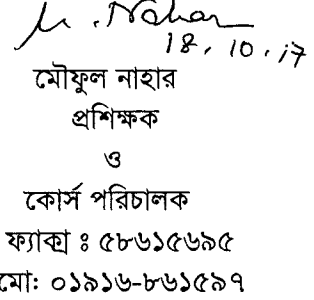 M. Nahar
18.10.17
মৌফুল নাহার
প্রশিক্ষক
ও
কোর্স পরিচালক
ফ্যাক্স ঃ ৫৮৬১৫৬৯৫
মো: ০১৯১৬-৮৬১৫৯৭